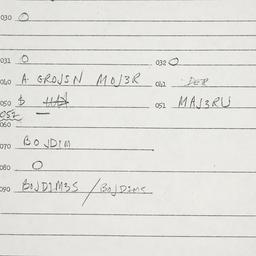 030 O
031 O 032 O
040 A GROJSN MOJ3R 041 DER
050 $ 051 MAJ3RU
052 —
060
070 BOJDIM
080 O
090 BOJDIM3S / BOJDIMS